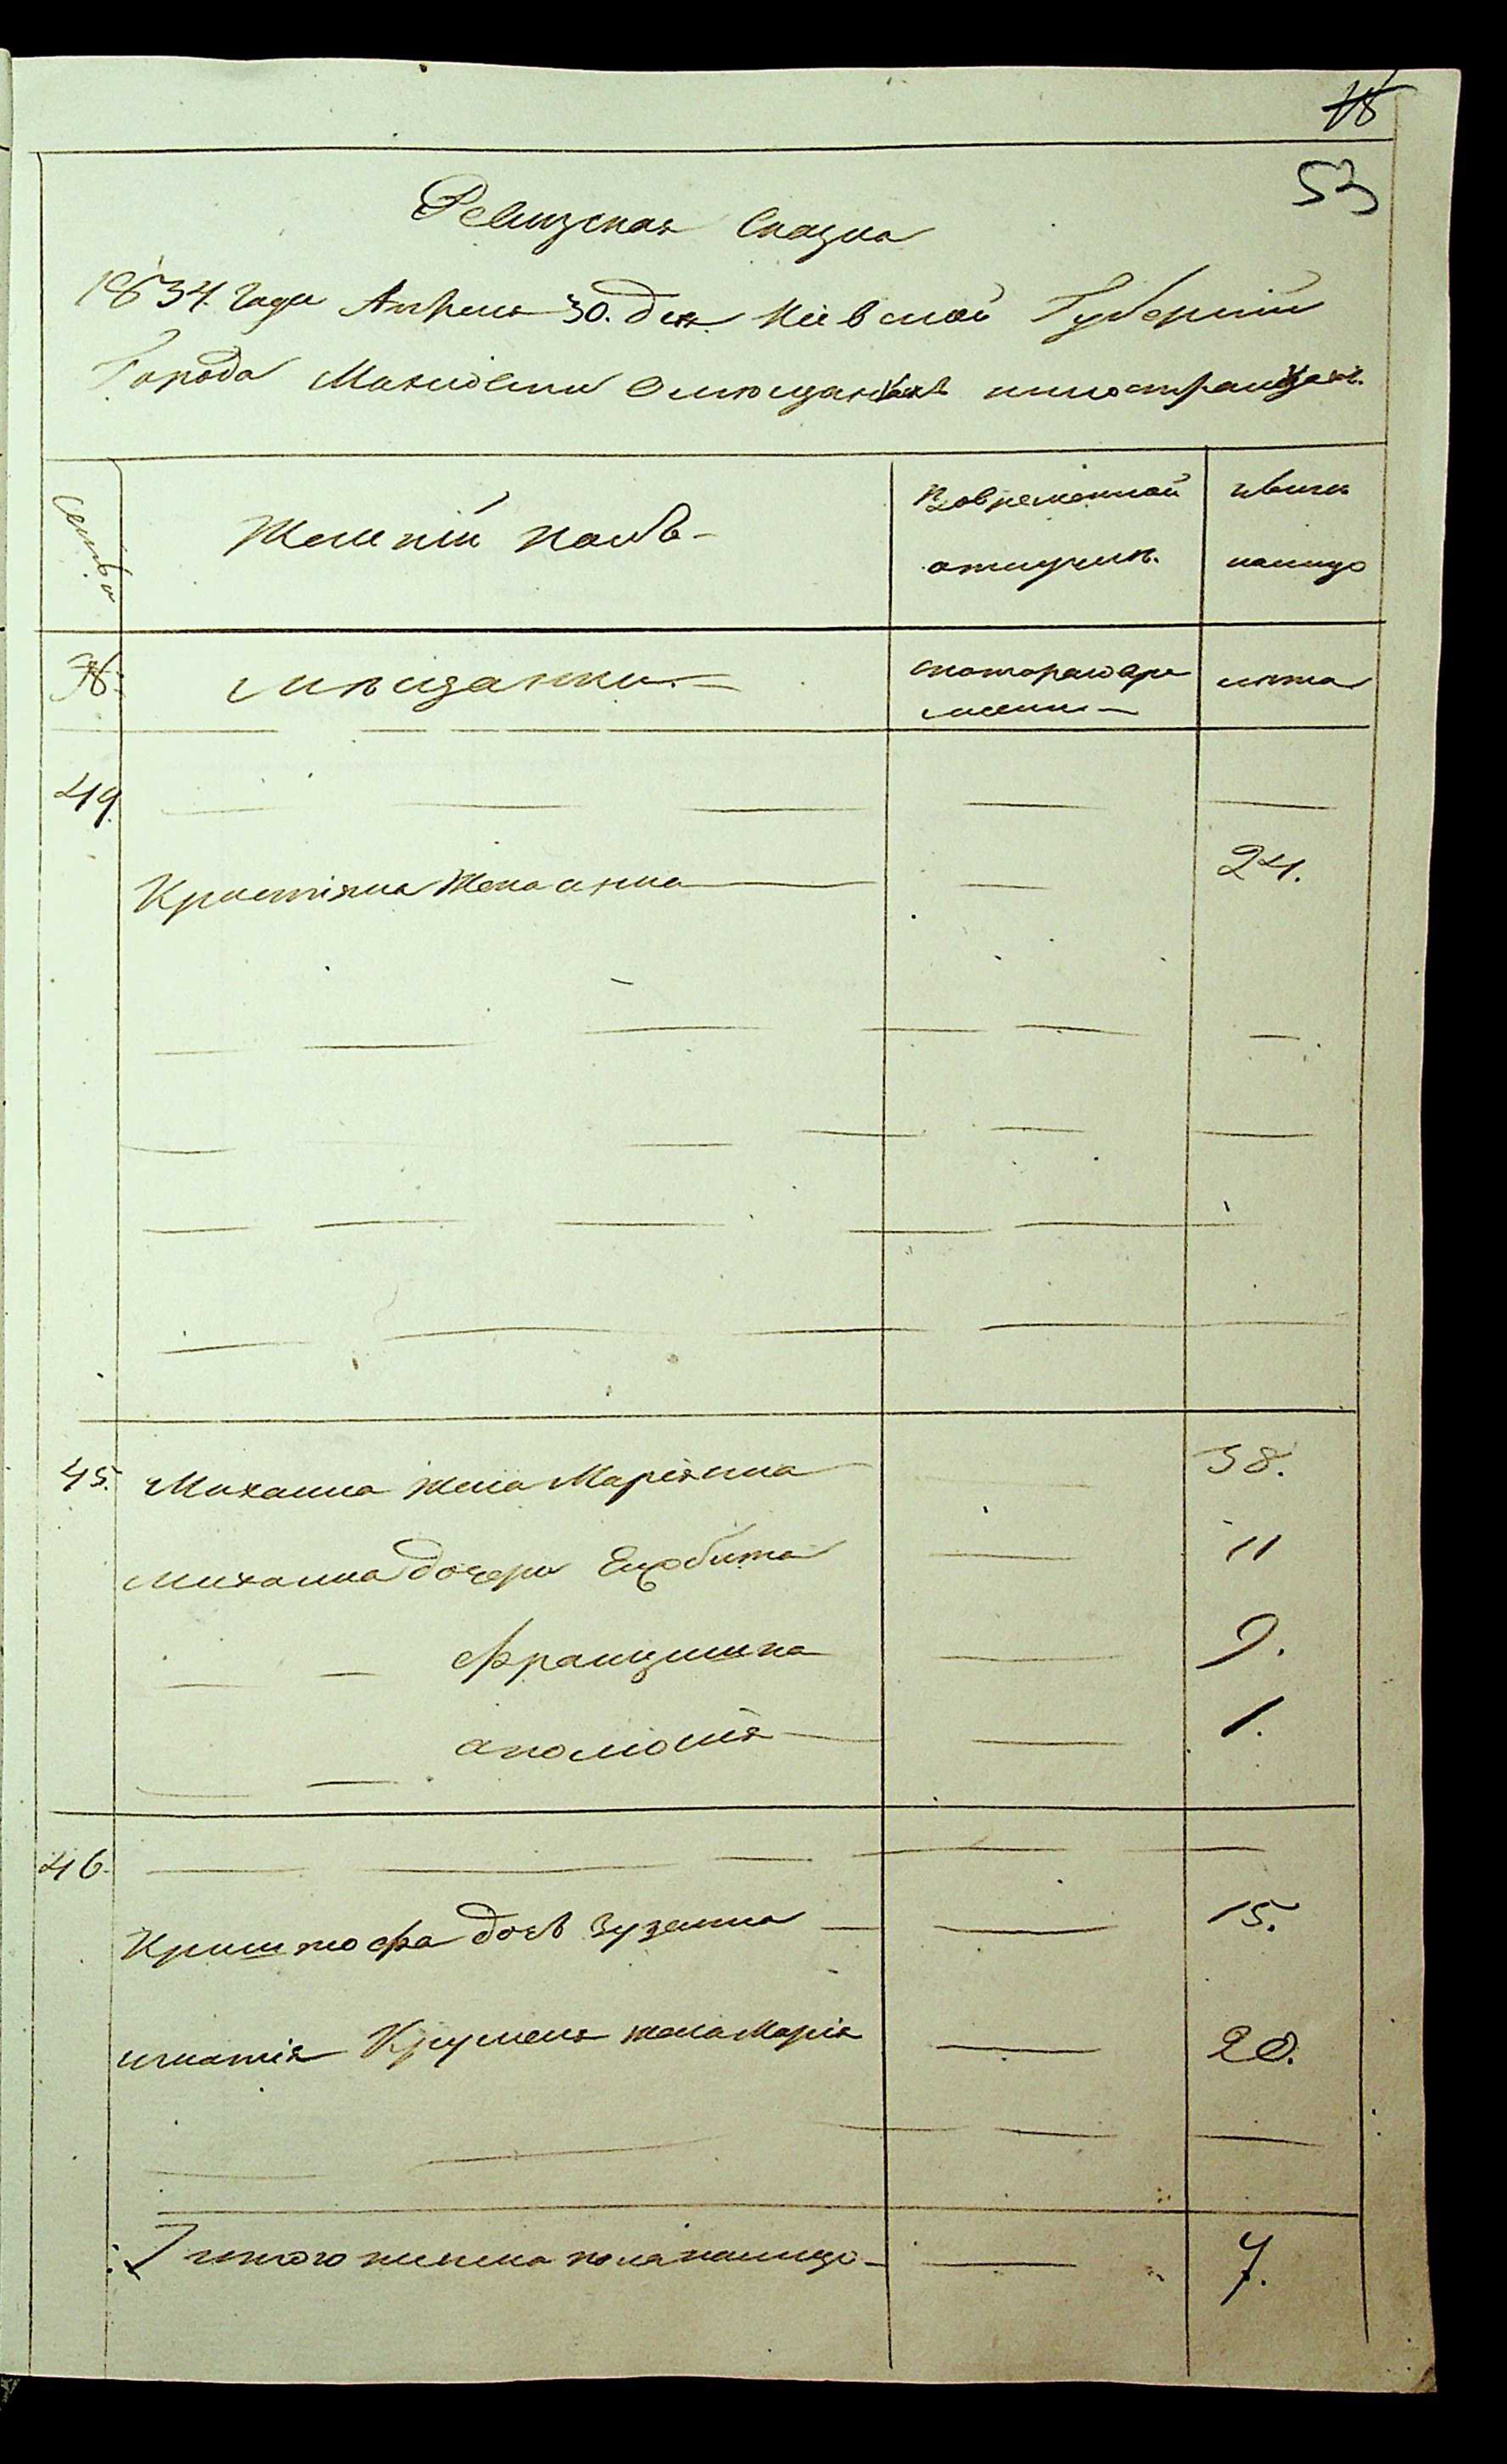 18
53
Ревизская Сказка
1834. Года Апреля 30. дня Кіевской Губерніи
Города Махновки Омещанахъ иностранцахъ.
Семьи
Женскій полъ-
Вовременной
отлучке.
ныне
налицо
№:
мещанки.
скоторало вре
мени
лета
49.
24.
Кристіяна Жена анна
45. Михаила жена Маріянна
38.
Михаила дочери Елзбита
11
Францишка
9.
аполонія
1.
46.
Криштофа дочь Зузанна
15.
игнатія Крумеля жена Марія
20.
Итого женска пола налицо
7.